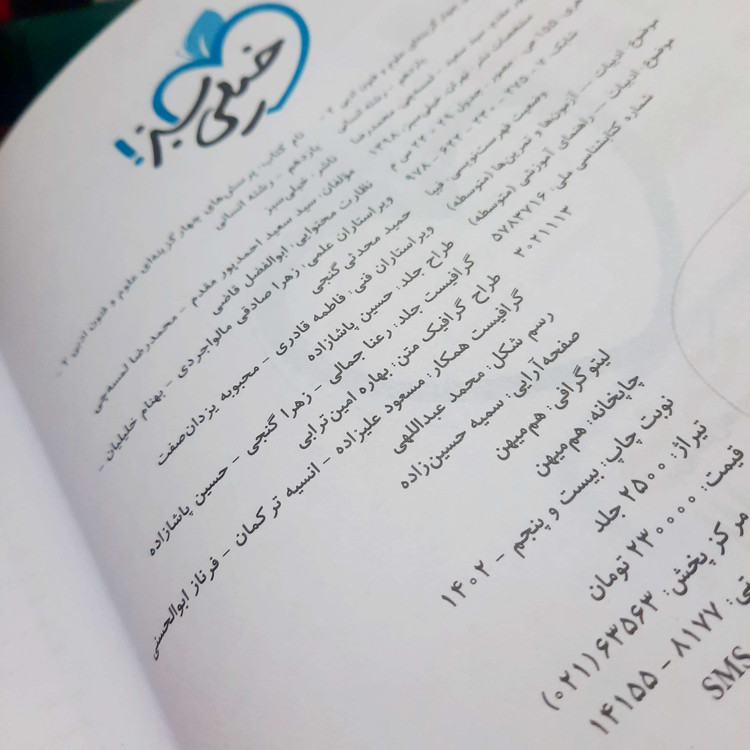 خیلی سبز!
چهارگزینه‌ای علوم و فنون ادبی ۲ -
یازدهم - رشته انسانی
سید سعید -
مشخصات نشر: تهران: خیلی‌سبز، ۱۳۹۸
۱۵۵ ص.: مصور، جدول؛ ۲۹ × ۲۲ س م
شابک: ۲ - ۲۷۵ - ۲۳۰ - ۶۲۲ - ۹۷۸
وضعیت فهرست‌نویسی: فیپا
موضوع: ادبیات -- آزمون‌ها و تمرین‌ها (متوسطه)
موضوع: ادبیات -- راهنمای آموزشی (متوسطه)
شماره کتابشناسی ملی: ۵۷۸۳۷۱۶
۳۰۲۱۱۱۳
نام کتاب: پرسش‌های چهارگزینه‌ای علوم و فنون ادبی ۲ -
یازدهم - رشته انسانی
ناشر: خیلی‌سبز
مؤلفان: سید سعید احمدپور مقدم - محمدرضا لمسه‌چی
نظارت محتوایی: ابوالفضل قاضی
ویراستاران علمی: زهرا صادقی مالواجردی - بهنام خلیلیان -
حمید محدثی گنجی
ویراستاران فنی: فاطمه قادری - محبوبه یزدان‌صفت
طراح جلد: حسین پاشازاده
گرافیست جلد: رعنا جمالی - زهرا گنجی - حسین پاشازاده
طراح گرافیک متن: بهاره امین‌ترابی
گرافیست همکار: مسعود علیزاده - انسیه ترکمان - فرناز ابوالحسنی
رسم شکل: محمد عبداللهی
صفحه‌آرایی: سمیه حسین‌زاده
لیتوگرافی: هم‌میهن
چاپخانه: هم‌میهن
نوبت چاپ: بیست و پنجم - ۱۴۰۲
تیراژ: ۲۵۰۰ جلد
قیمت: ۲۳۰۰۰۰ تومان
مرکز پخش: ۶۳۵۶۳ (۰۲۱)
۸۱۷۷ - ۱۴۱۵۵
SMS